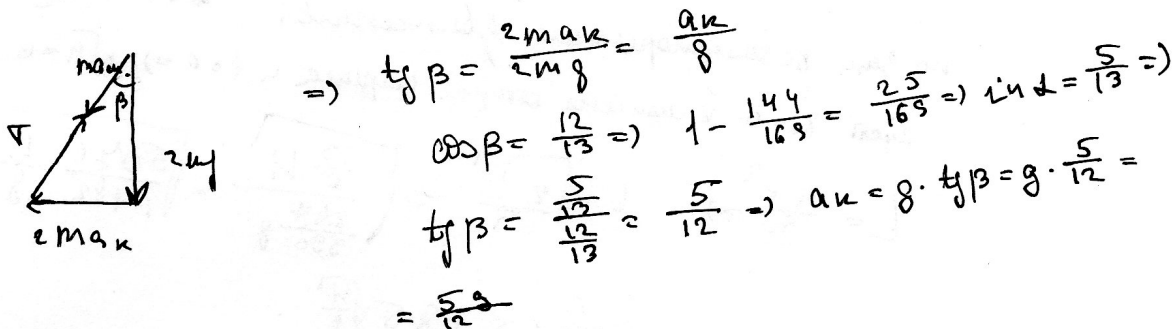 ma
β
T
2mg
2maк
=> tg β = 2maк/2mg = aк/g
cos β = 12/13 => 1 - 144/169 = 25/169 => sin α = 5/13 =>
tg β = (5/13)/(12/13) = 5/12 => aк = g · tg β = g · 5/12 =
= 5g/12